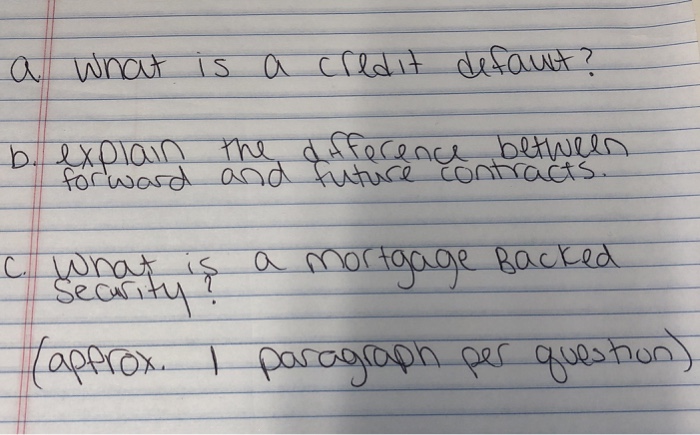 a. What is a credit defaut?
b. explain the difference between
forward and future contracts.
c. What is a mortgage Backed
Security?
(approx. 1 paragraph per question)